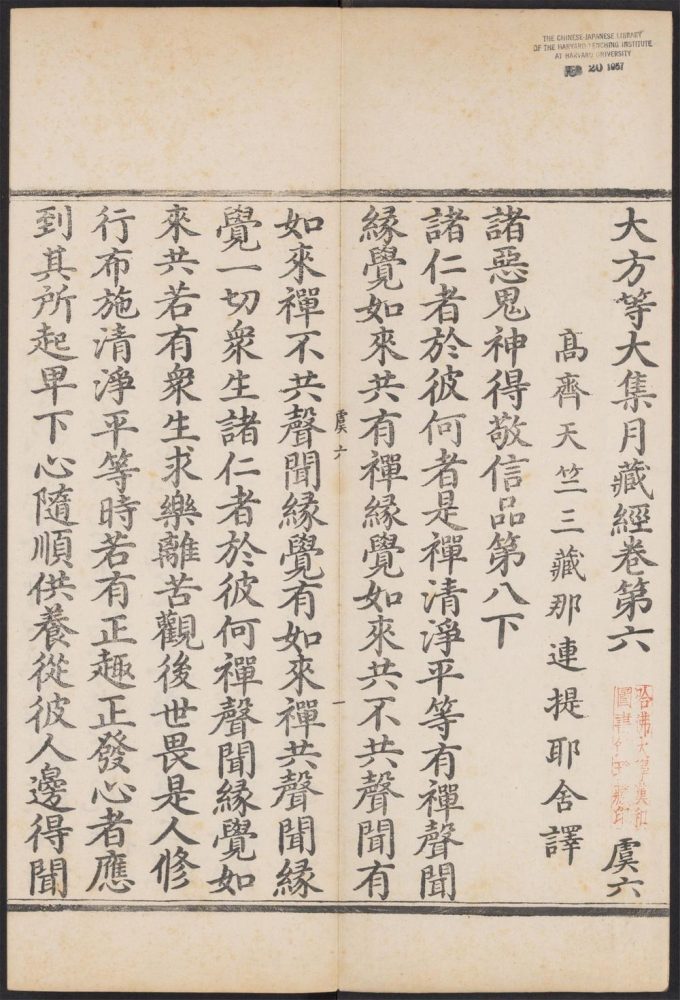 THE CHINESE-JAPANESE LIBRARY
OF THE HARVARD-YENCHING INSTITUTE
AT HARVARD UNIVERSITY
FEB 20 1957
大方等大集月藏經卷第六
虞六
哈佛大學漢和
圖書館珍藏印
高齊天竺三藏那連提耶舍譯
諸惡鬼神得敬信品第八下
諸仁者於彼何者是禪清淨平等有禪聲聞
緣覺如來共有禪緣覺如來共不共聲聞有
虞六
一
如來禪不共聲聞緣覺有如來禪共聲聞緣
覺一切衆生諸仁者於彼何禪聲聞緣覺如
來共若有衆生求樂離苦觀後世畏是人修
行布施清淨平等時若有正趣正發心者應
到其所起卑下心隨順供養從彼人邊得聞